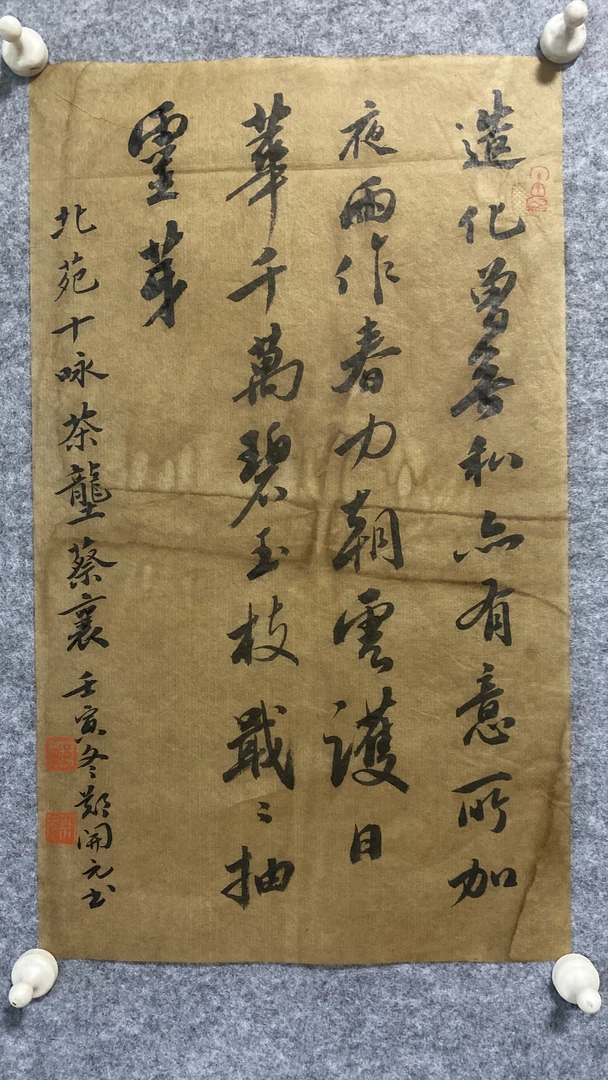 造化曾無私亦有意所加
夜雨作春力朝雲護日
華千萬碧玉枝戢〻抽
靈芽
北苑十咏茶壟蔡襄壬寅冬鄭開元书